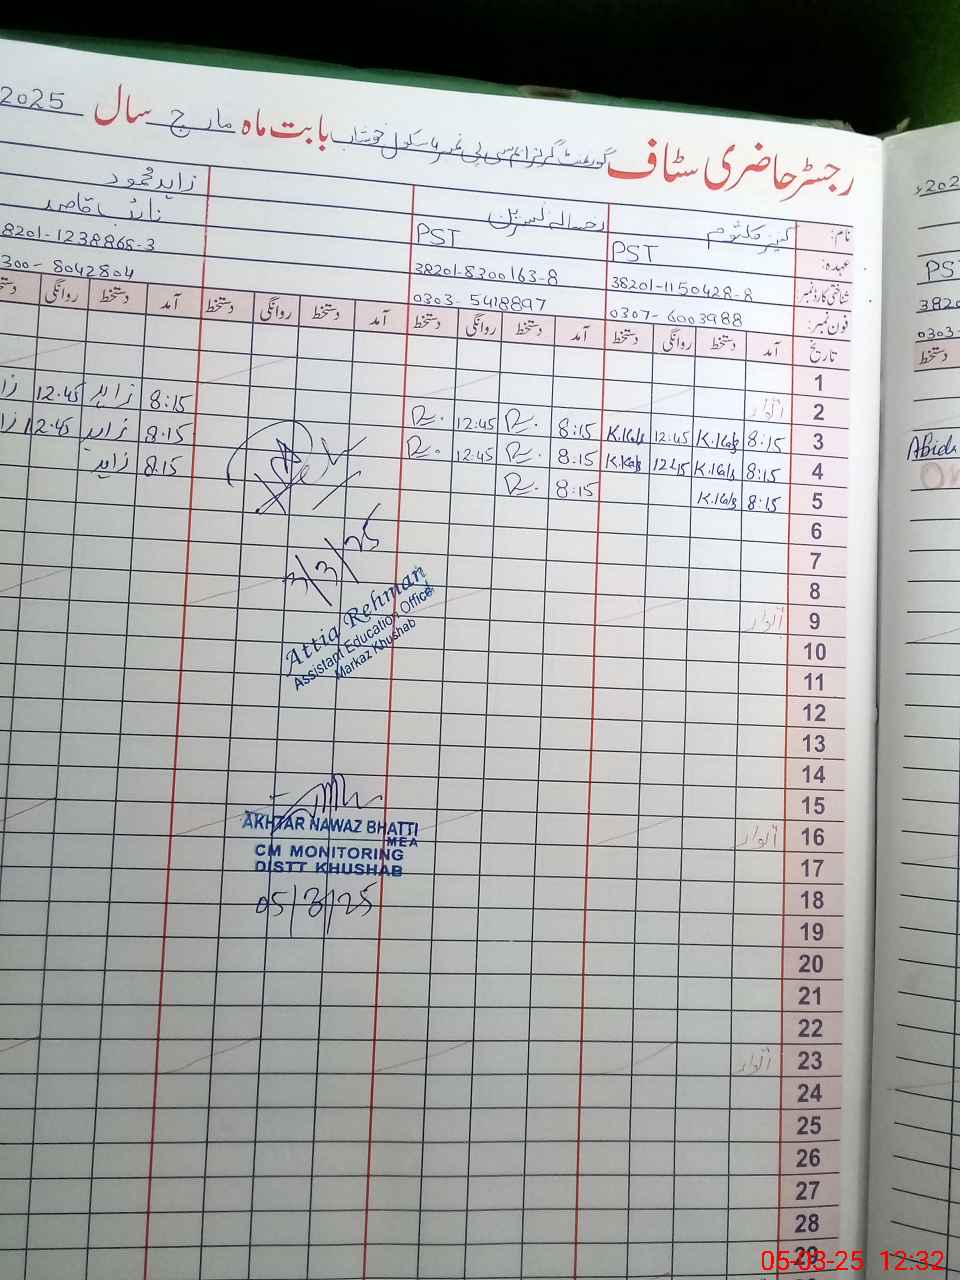 رجسٹر حاضری سٹاف گورنمنٹ گرلز ایم سی پی نمبر ۴ سکول خوشاب بابت ماہ مارچ سال 2025
نام: کنیز کلثوم نسرین زاہد محمود
عہدہ: PST PST نائب قاصد
شناختی کارڈ نمبر 38201-1150428-8 38201-8300163-8 8201-1238868-3
فون نمبر: 0307-6003988 0303-5418897 300-8042804
تاریخ آمد دستخط روانگی دستخط آمد دستخط روانگی دستخط آمد دستخط روانگی دستخط آمد دستخط روانگی
1
2 اتوار
3 8:15 12:45 8:15 12:45 8:15 زاہد 12:45 زا
4 8:15 12:45 8:15 12:45 8:15 زاہد 12:45 زا
5 8:15 8:15 8:15 زاہد
6
7
8
9 اتوار
10
11
12
13
14
15
16 اتوار
17
18
19
20
21
22
23 اتوار
24
25
26
27
28
29
3/3/25
Attia Rehman
Assistant Education Officer
Markaz Khushab
AKHTAR NAWAZ BHATTI
MEA
CM MONITORING
DISTT KHUSHAB
05/3/25
202
PS
3820
0303-
دستخط
Abid
05-03-25 12:32